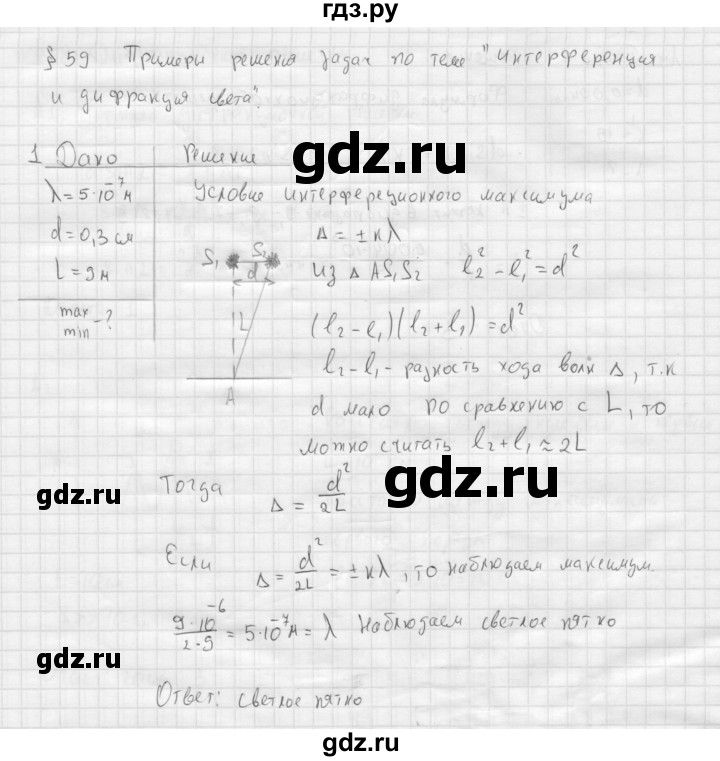 гдз.ру
§ 59 Примеры решения задач по теме "Интерференция
и дифракция света".
1 Дано Решение
gdz.ru
λ = 5·10⁻⁷ м Условие интерференционного максимума
d = 0,3 см S₁ S₂ Δ = ± kλ
L = 9 м d Из Δ AS₁S₂ l₂² - l₁² = d²
max/min - ? L (l₂ - l₁)(l₂ + l₁) = d²
l₂ - l₁ - разность хода волн Δ, т.к
A d мало по сравнению с L, то
можно считать l₂ + l₁ ≈ 2L
gdz.ru
gdz.ru Тогда Δ = d²/2L
Если Δ = d²/2L = ± kλ, то наблюдаем максимум.
9·10⁻⁶/2·9 = 5·10⁻⁷ м = λ Наблюдаем светлое пятно
gdz.ru
gdz.ru
Ответ: светлое пятно
gdz.ru